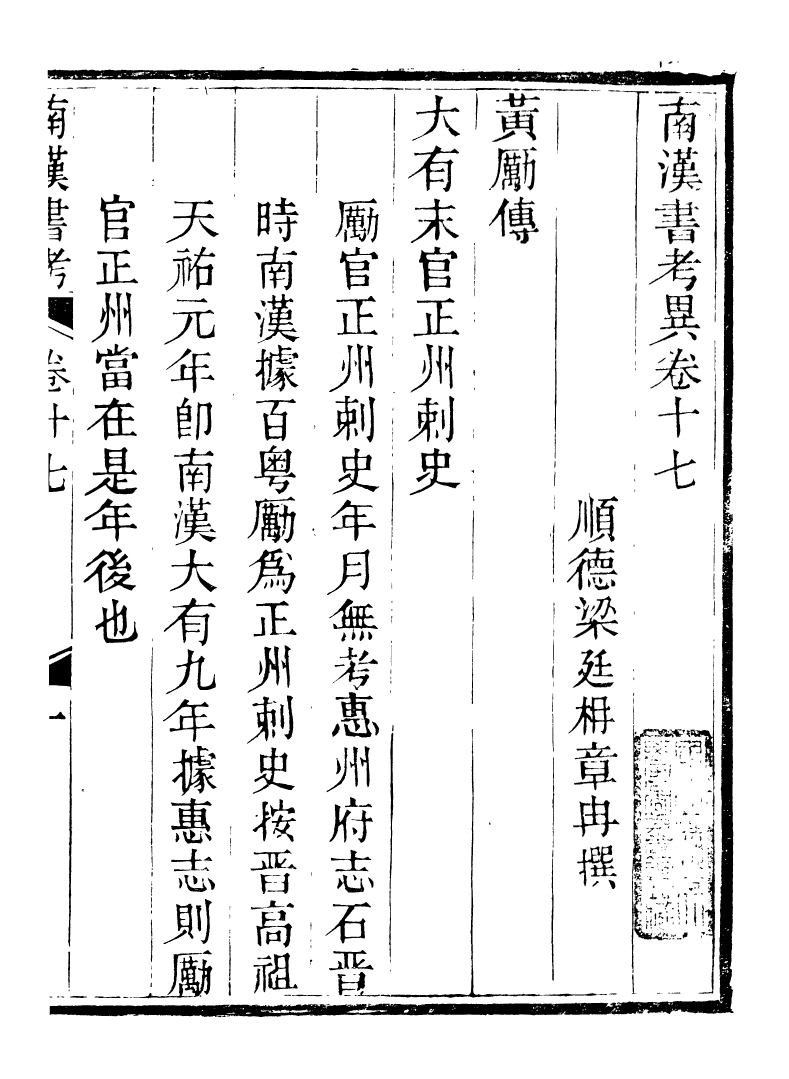 南漢書考異卷十七
順德梁廷枏章冉撰
黃勵傳
大有末官正州刺史
勵官正州刺史年月無考惠州府志石晉
時南漢據百粤勵爲正州刺史按晉高祖
天祐元年卽南漢大有九年據惠志則勵
官正州當在是年後也
南漢書考 卷十七 一